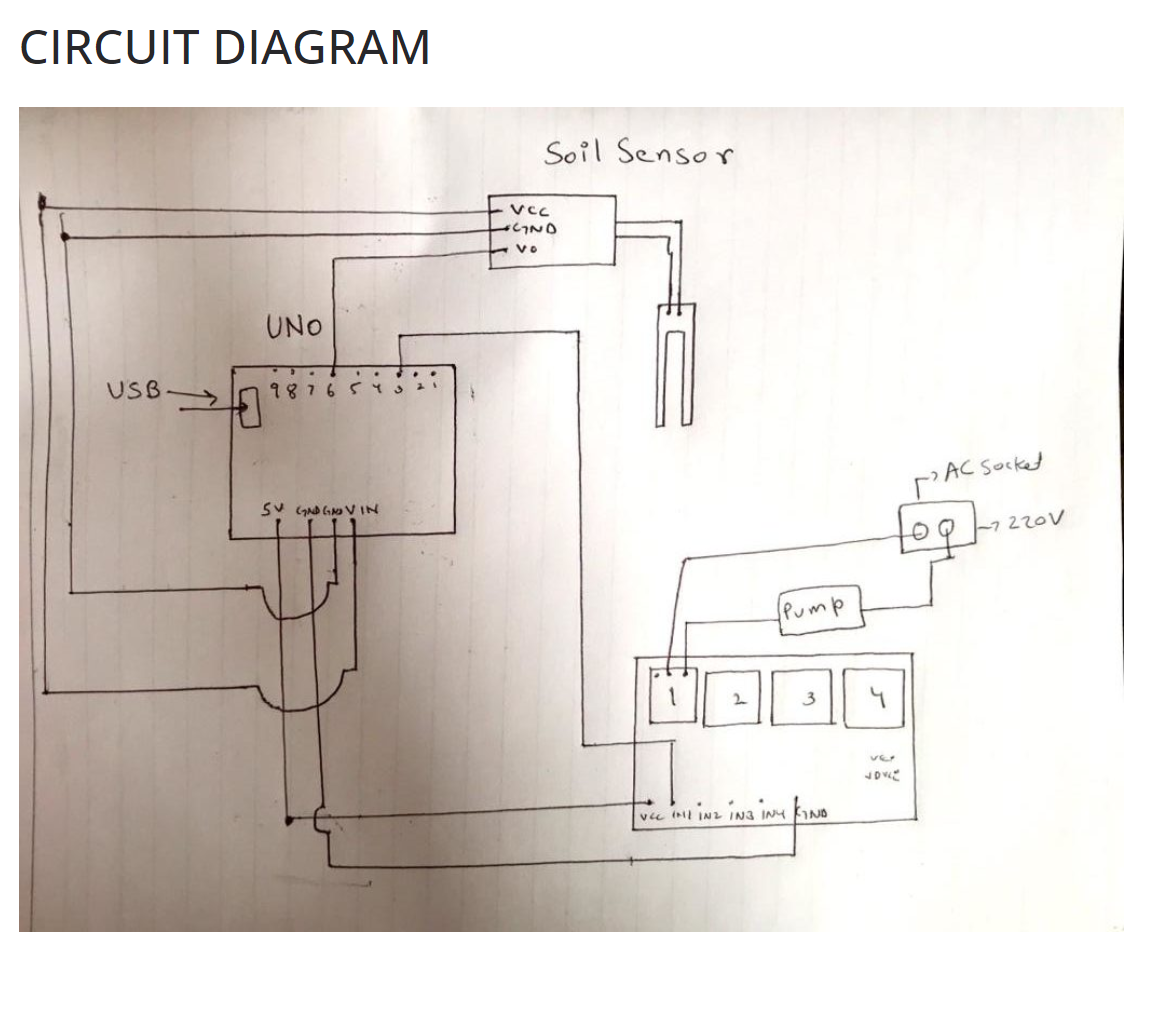 CIRCUIT DIAGRAM
Soil Sensor
VCC
GND
VO
UNO
USB
9 8 7 6 5 4 3 2 1
5V GND GND VIN
AC Socket
220V
Pump
1 2 3 4
VCC IN1 IN2 IN3 IN4 GND